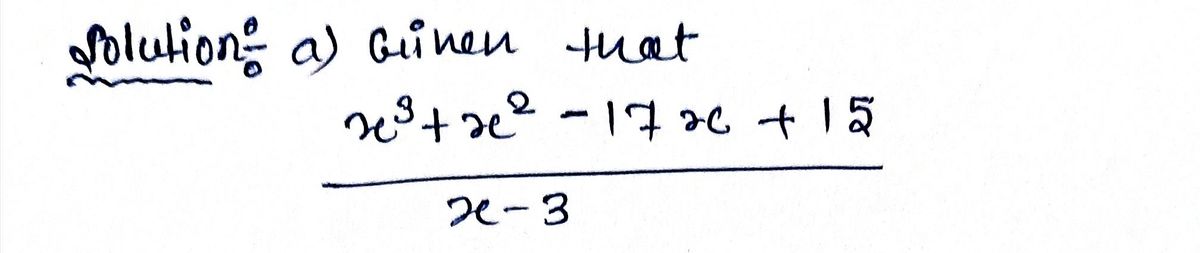 Solution: a) Given that
x³ + x² - 17x + 15
x - 3